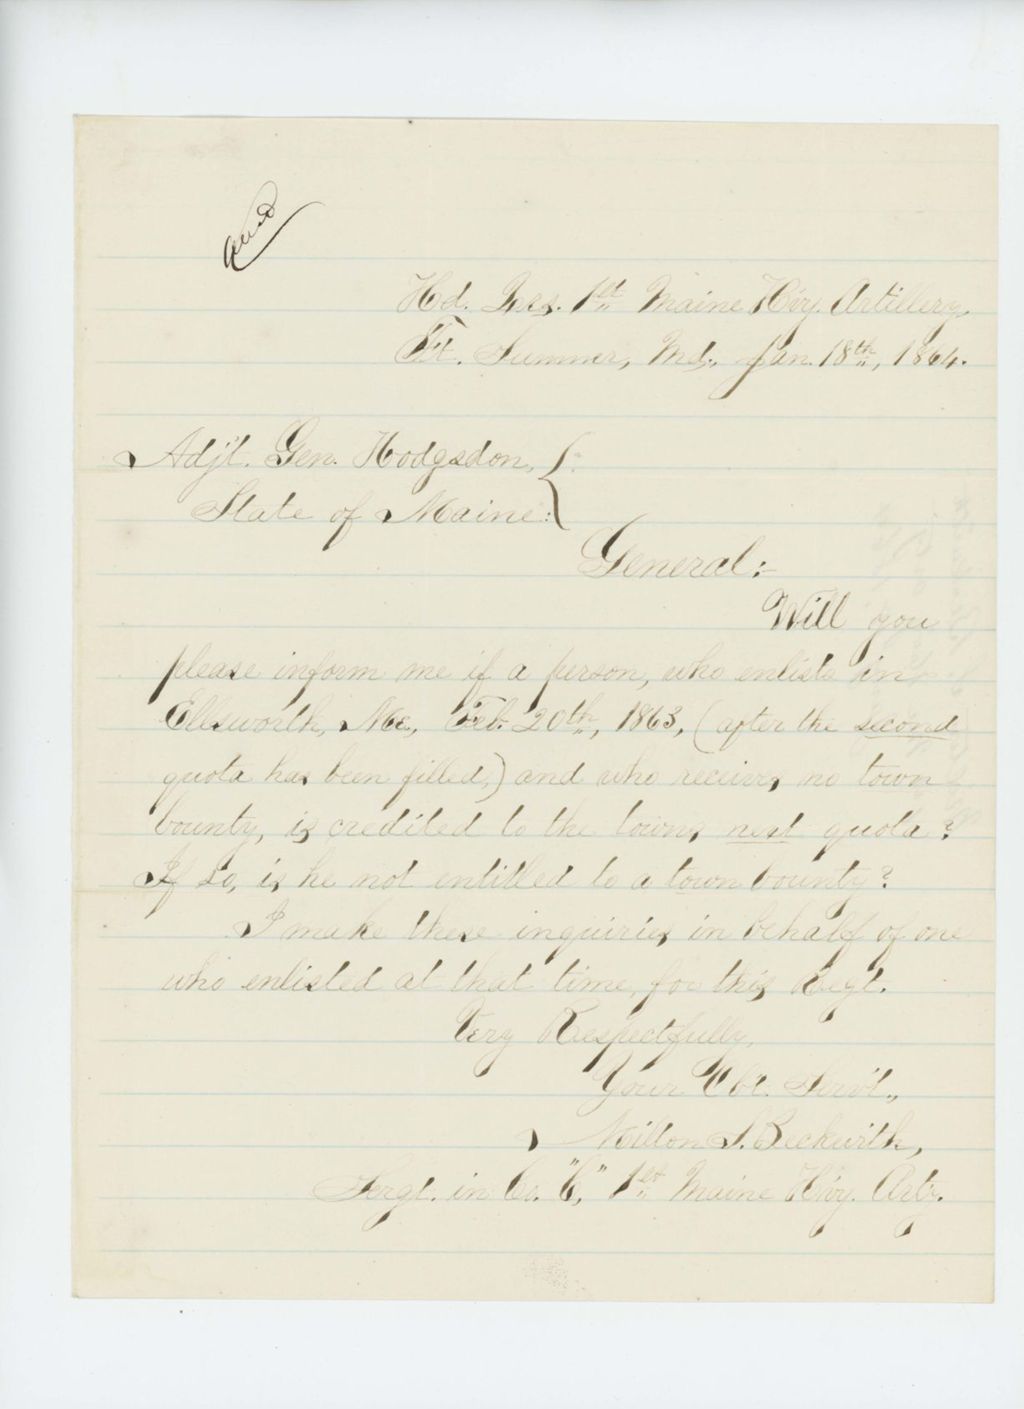 Ansd
Hd. Qrs. 1st Maine H'vy. Artillery,
Ft. Sumner, Md., Jan. 18th, 1864.
Adj't. Gen. Hodgsdon,
State of Maine:
General:-
Will you
please inform me if a person, who enlists in
Ellsworth, Me., Feb. 20th, 1863, (after the second
quota has been filled,) and who receives no town
bounty, is credited to the towns next quota?
If so, is he not entitled to a town bounty?
I make these inquiries in behalf of one
who enlisted at that time, for this Regt.
Very Respectfully,
Your Obt. Serv't.,
Milton S. Beckwith,
Sergt. in Co. "C," 1st Maine H'vy. Art'y.